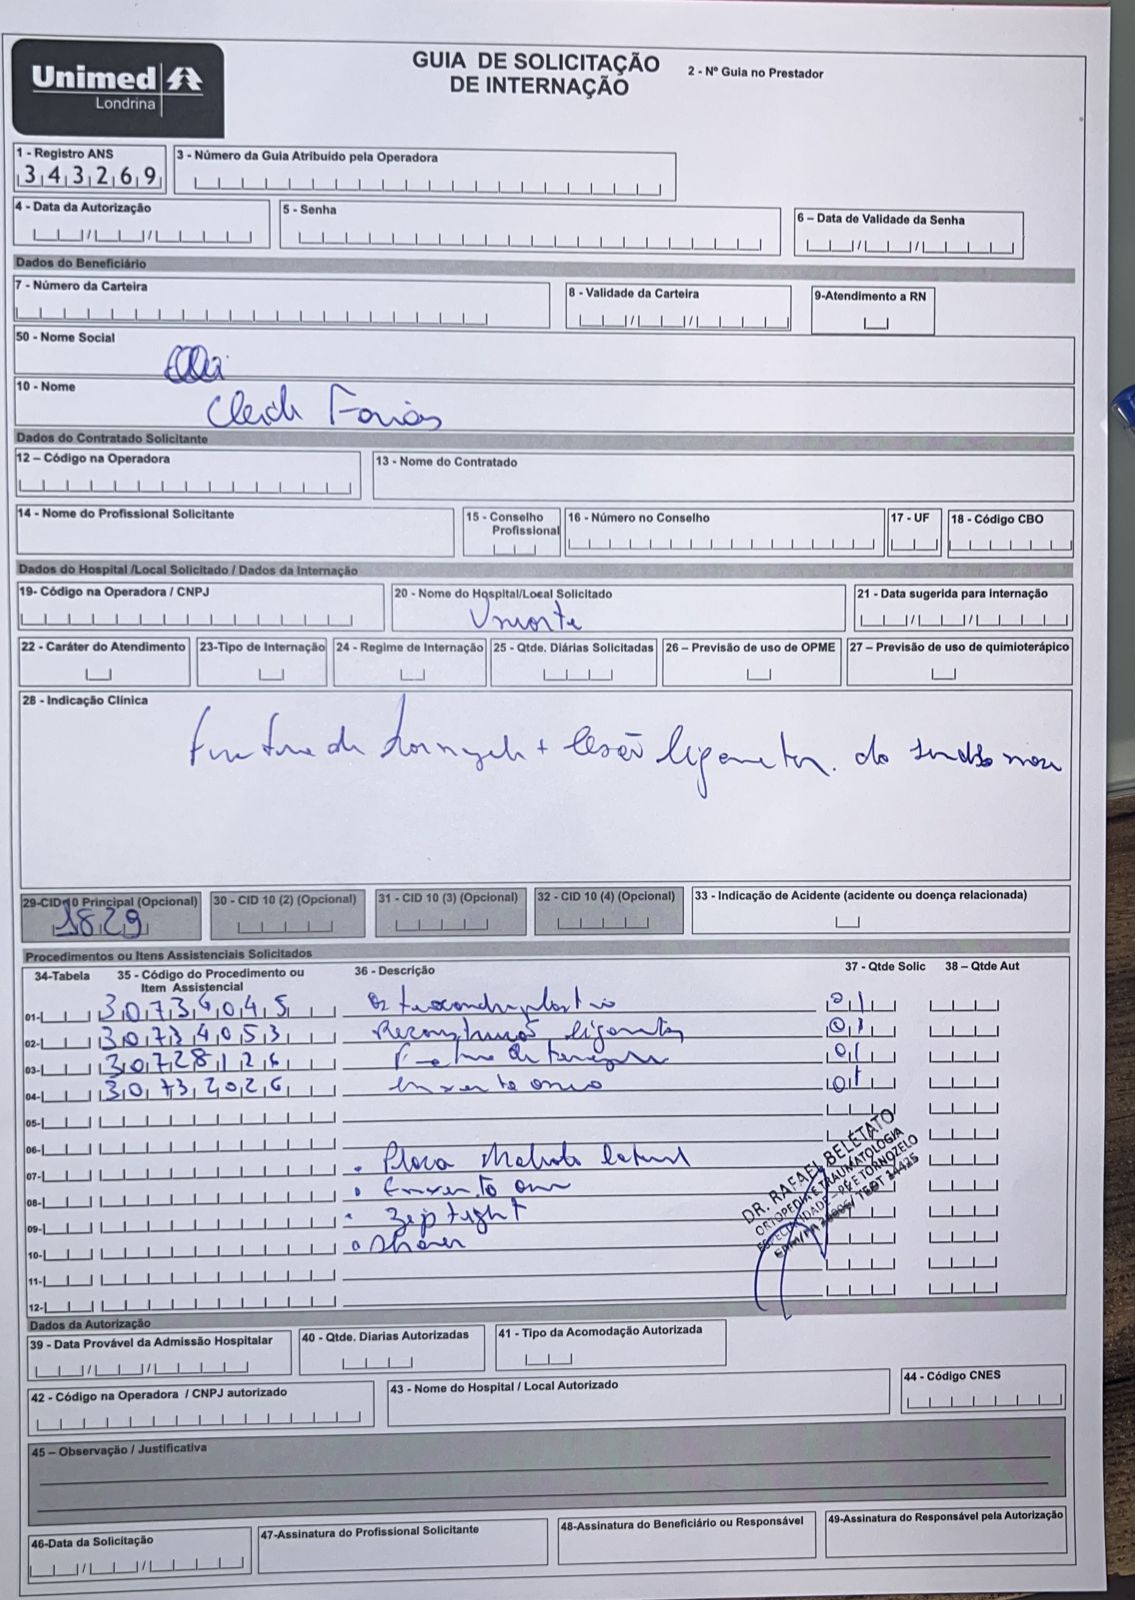 Unimed
Londrina
GUIA DE SOLICITAÇÃO
DE INTERNAÇÃO
2 - Nº Guia no Prestador
1 - Registro ANS
343269
3 - Número da Guia Atribuído pela Operadora
4 - Data da Autorização
5 - Senha
6 – Data de Validade da Senha
Dados do Beneficiário
7 - Número da Carteira
8 - Validade da Carteira
9-Atendimento a RN
50 - Nome Social
10 - Nome
Farias
Dados do Contratado Solicitante
12 – Código na Operadora
13 - Nome do Contratado
14 - Nome do Profissional Solicitante
15 - Conselho
Profissional
16 - Número no Conselho
17 - UF
18 - Código CBO
Dados do Hospital /Local Solicitado / Dados da Internação
19- Código na Operadora / CNPJ
20 - Nome do Hospital/Local Solicitado
21 - Data sugerida para internação
22 - Caráter do Atendimento
23-Tipo de Internação
24 - Regime de Internação
25 - Qtde. Diárias Solicitadas
26 – Previsão de uso de OPME
27 – Previsão de uso de quimioterápico
28 - Indicação Clínica
+ lesão
29-CID 10 Principal (Opcional)
S829
30 - CID 10 (2) (Opcional)
31 - CID 10 (3) (Opcional)
32 - CID 10 (4) (Opcional)
33 - Indicação de Acidente (acidente ou doença relacionada)
Procedimentos ou Itens Assistenciais Solicitados
34-Tabela
35 - Código do Procedimento ou
Item Assistencial
36 - Descrição
37 - Qtde Solic
38 – Qtde Aut
01- 01
02- 30734053 01
03- 30728126 01
04- 30732026 enxerto osseo 01
05-
06-
07- . Placa Maleolo lateral
08-
09- zip tight
10- shaver
11-
12-
DR. RAFAEL BELETATO
ORTOPEDIA E TRAUMATOLOGIA
ESPECIALIDADE - PÉ E TORNOZELO
Dados da Autorização
39 - Data Provável da Admissão Hospitalar
40 - Qtde. Diarias Autorizadas
41 - Tipo da Acomodação Autorizada
42 - Código na Operadora / CNPJ autorizado
43 - Nome do Hospital / Local Autorizado
44 - Código CNES
45 – Observação / Justificativa
46-Data da Solicitação
47-Assinatura do Profissional Solicitante
48-Assinatura do Beneficiário ou Responsável
49-Assinatura do Responsável pela Autorização